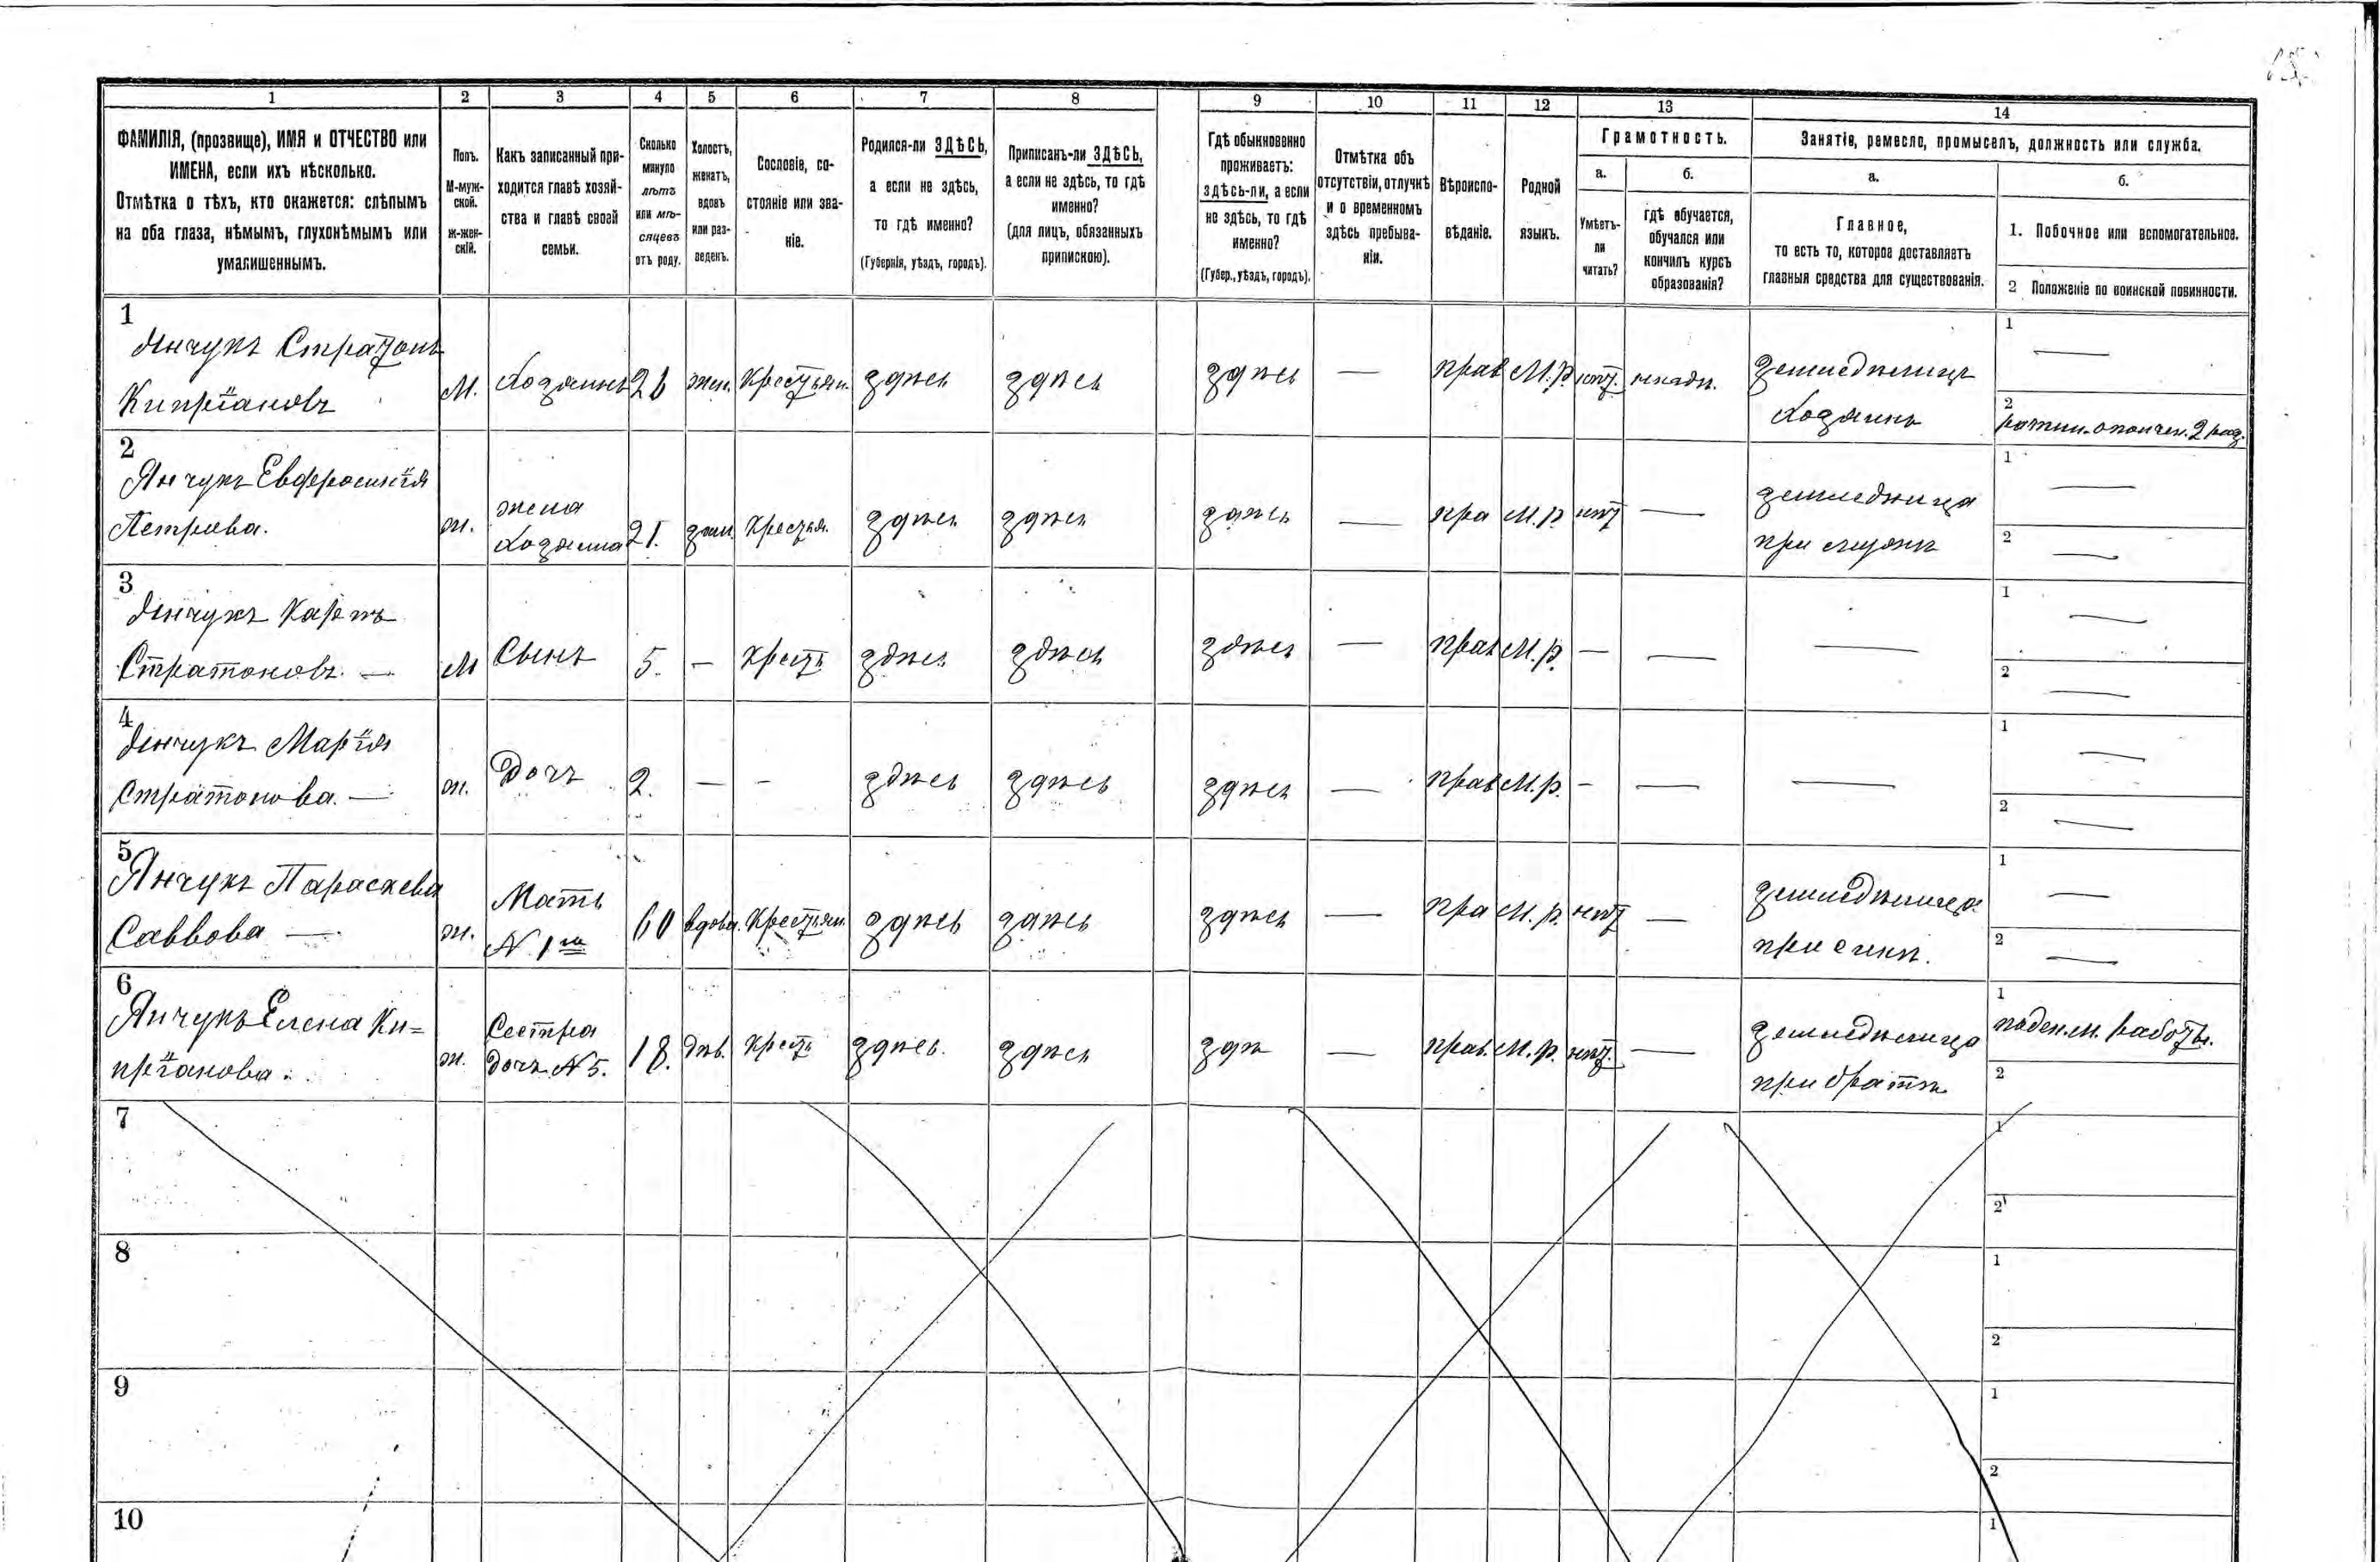 1 2 3 4 5 6 7 8 9 10 11 12 13 14
ФАМИЛІЯ, (прозвище), ИМЯ и ОТЧЕСТВО или
ИМЕНА, если ихъ нѣсколько.
Отмѣтка о тѣхъ, кто окажется: слѣпымъ
на оба глаза, нѣмымъ, глухонѣмымъ или
умалишеннымъ.
Полъ.
М-муж-
ской.
Ж-жен-
скій.
Какъ записанный при-
ходится главѣ хозяй-
ства и главѣ своей
семьи.
Сколько
минуло
лѣтъ
или мѣ-
сяцевъ
отъ роду.
Холостъ,
женатъ,
вдовъ
или раз-
веденъ.
Сословіе, со-
стояніе или зва-
ніе.
Родился-ли ЗДѢСЬ,
а если не здѣсь,
то гдѣ именно?
(Губернія, уѣздъ, городъ).
Приписанъ-ли ЗДѢСЬ,
а если не здѣсь, то гдѣ
именно?
(для лицъ, обязанныхъ
припискою).
Гдѣ обыкновенно
проживаетъ:
здѣсь-ли, а если
не здѣсь, то гдѣ
именно?
(Губер., уѣздъ, городъ).
Отмѣтка объ
отсутствіи, отлучкѣ
и о временномъ
здѣсь пребыва-
ніи.
Вѣроиспо-
вѣданіе.
Родной
языкъ.
Грамотность.
а.
Умѣетъ-
ли
читать?
б.
гдѣ обучается,
обучался или
кончилъ курсъ
образованія?
Занятіе, ремесло, промыселъ, должность или служба.
а.
Главное,
то есть то, которое доставляетъ
главныя средства для существованія.
б.
1. Побочное или вспомогательное.
2 Положеніе по воинской повинности.
1
Янчукъ Стратонъ
Кипріановъ
М. Хозяинъ 26 жен. Крестьян. здѣсь здѣсь здѣсь — прав М.р нѣт.
земледѣлецъ
Хозяинъ
1 —
2 ратник ополчен. 2 раз.
2
Янчукъ Евфросинія
Петрова.
ж.
жена
Хозяина
21. зам. Крестья. здѣсь здѣсь здѣсь — пра М.р нѣт —
земледѣлица
при мужѣ
1 —
2 —
3
Янчукъ Карпъ
Стратоновъ. —
М Сынъ 5. — Крест здѣсь здѣсь здѣсь — прав М.р. — — —
1 —
2 —
4
Янчукъ Марія
Стратонова. —
ж. Дочь 2. — - здѣсь здѣсь здѣсь — прав М.р. - — —
1 —
2 —
5
Янчукъ Параскева
Саввова —
ж.
Мать
N 1го
60 вдова. Крестьян. здѣсь здѣсь здѣсь — пра М.р. нѣт —
земледѣлица
при сынѣ.
1 —
2 —
6
Янчукъ Елена Ки=
пріанова.
ж.
Сестра
дочь N 5.
18. дѣв. Крест здѣсь. здѣсь здѣ — прав. М.р. нѣт. —
земледѣлица
при братѣ
1 поден. работы.
2
7
1
2
8
1
2
9
1
2
10
1